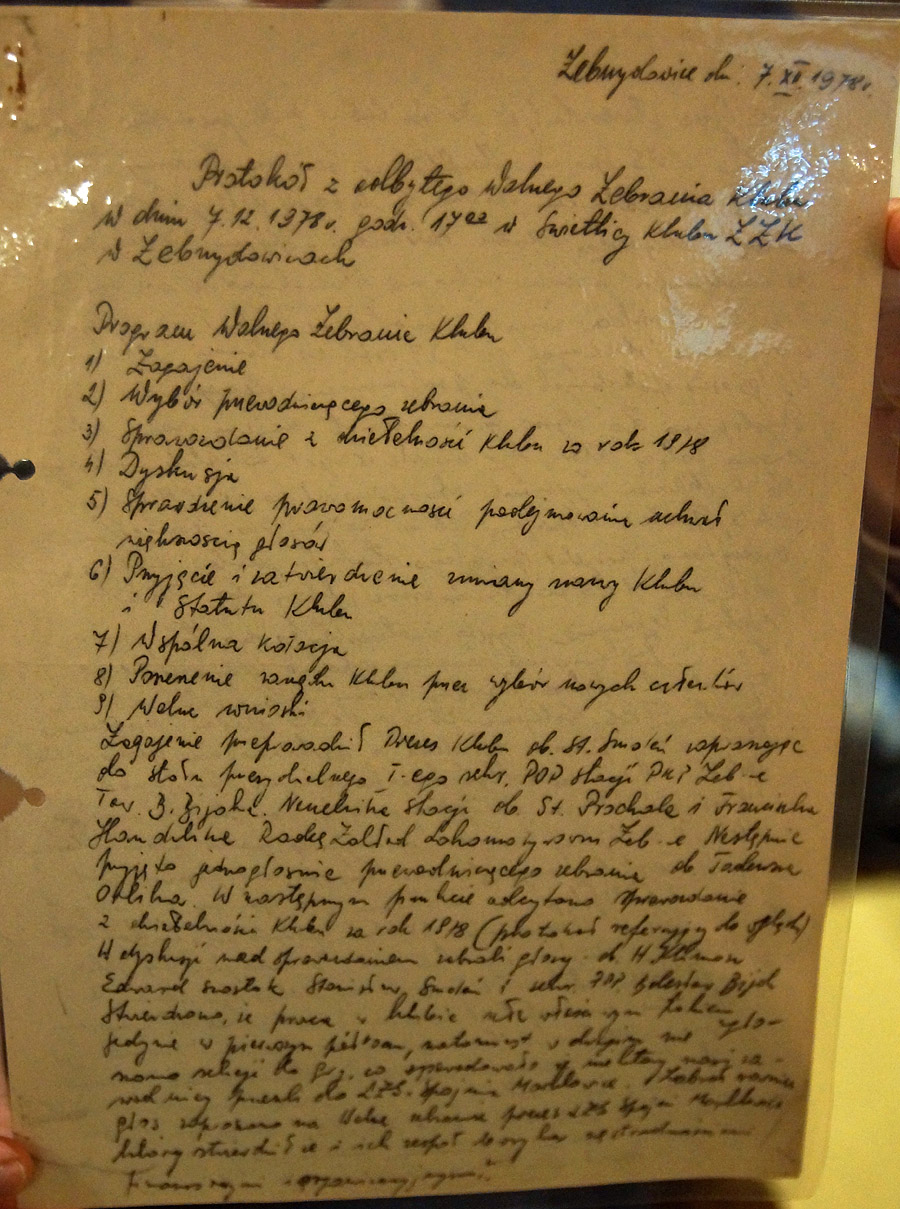 Zebrzydowice dn. 7.XII.1978r.
Protokół z odbytego Walnego Zebrania Klubu
w dniu 7.12.1978r. godz. 17⁰⁰ w świetlicy Klubu ZZK
w Zebrzydowicach
Program Walnego Zebrania Klubu
1) Zagajenie
2) Wybór przewodniczącego zebrania
3) Sprawozdanie z działalności Klubu za rok 1978
4) Dyskusja
5) Sprawdzenie prawomocności podejmowania uchwał
większością głosów
6) Przyjęcie i zatwierdzenie zmiany nazwy Klubu
i Statutu Klubu
7) Wspólna kolacja
8) Poszerzenie zarządu Klubu przez wybór nowych członków
9) Wolne wnioski
Zagajenie przeprowadził Prezes Klubu ob. St. Smoleń zapraszając
do stołu prezydialnego I-ego sekr. POP Stacji PKP Zeb-e
Tow. B. Naczelnika Stacji ob. St. Prochala i Franciszka
Radę Zakład. Zeb-e Następnie
przyjęto jednogłośnie przewodniczącego zebrania ob Tadeusza
W następnym punkcie odczytano sprawozdanie
z działalności Klubu za rok 1978 (protokół referujący do wglądu)
W dyskusji nad sprawozdaniem zabrali głosy ob H. Klimosz
Edward Szostok Stanisław Smoleń i sekr. POP Bolesław
Stwierdzono, że praca w klubie szła właściwym tokiem
jedynie w pierwszym półroczu, natomiast w drugim nie zgło-
szono sekcji do gry, co spowodowało że
zawodnicy przeszli do LZS Spójnia Marklowice.
głos zaproszony na Walne zebranie prezes LZS Spójni Marklowice
który stwierdził że i ich zespół boryka się trudnościami
finansowymi i organizacyjnymi.